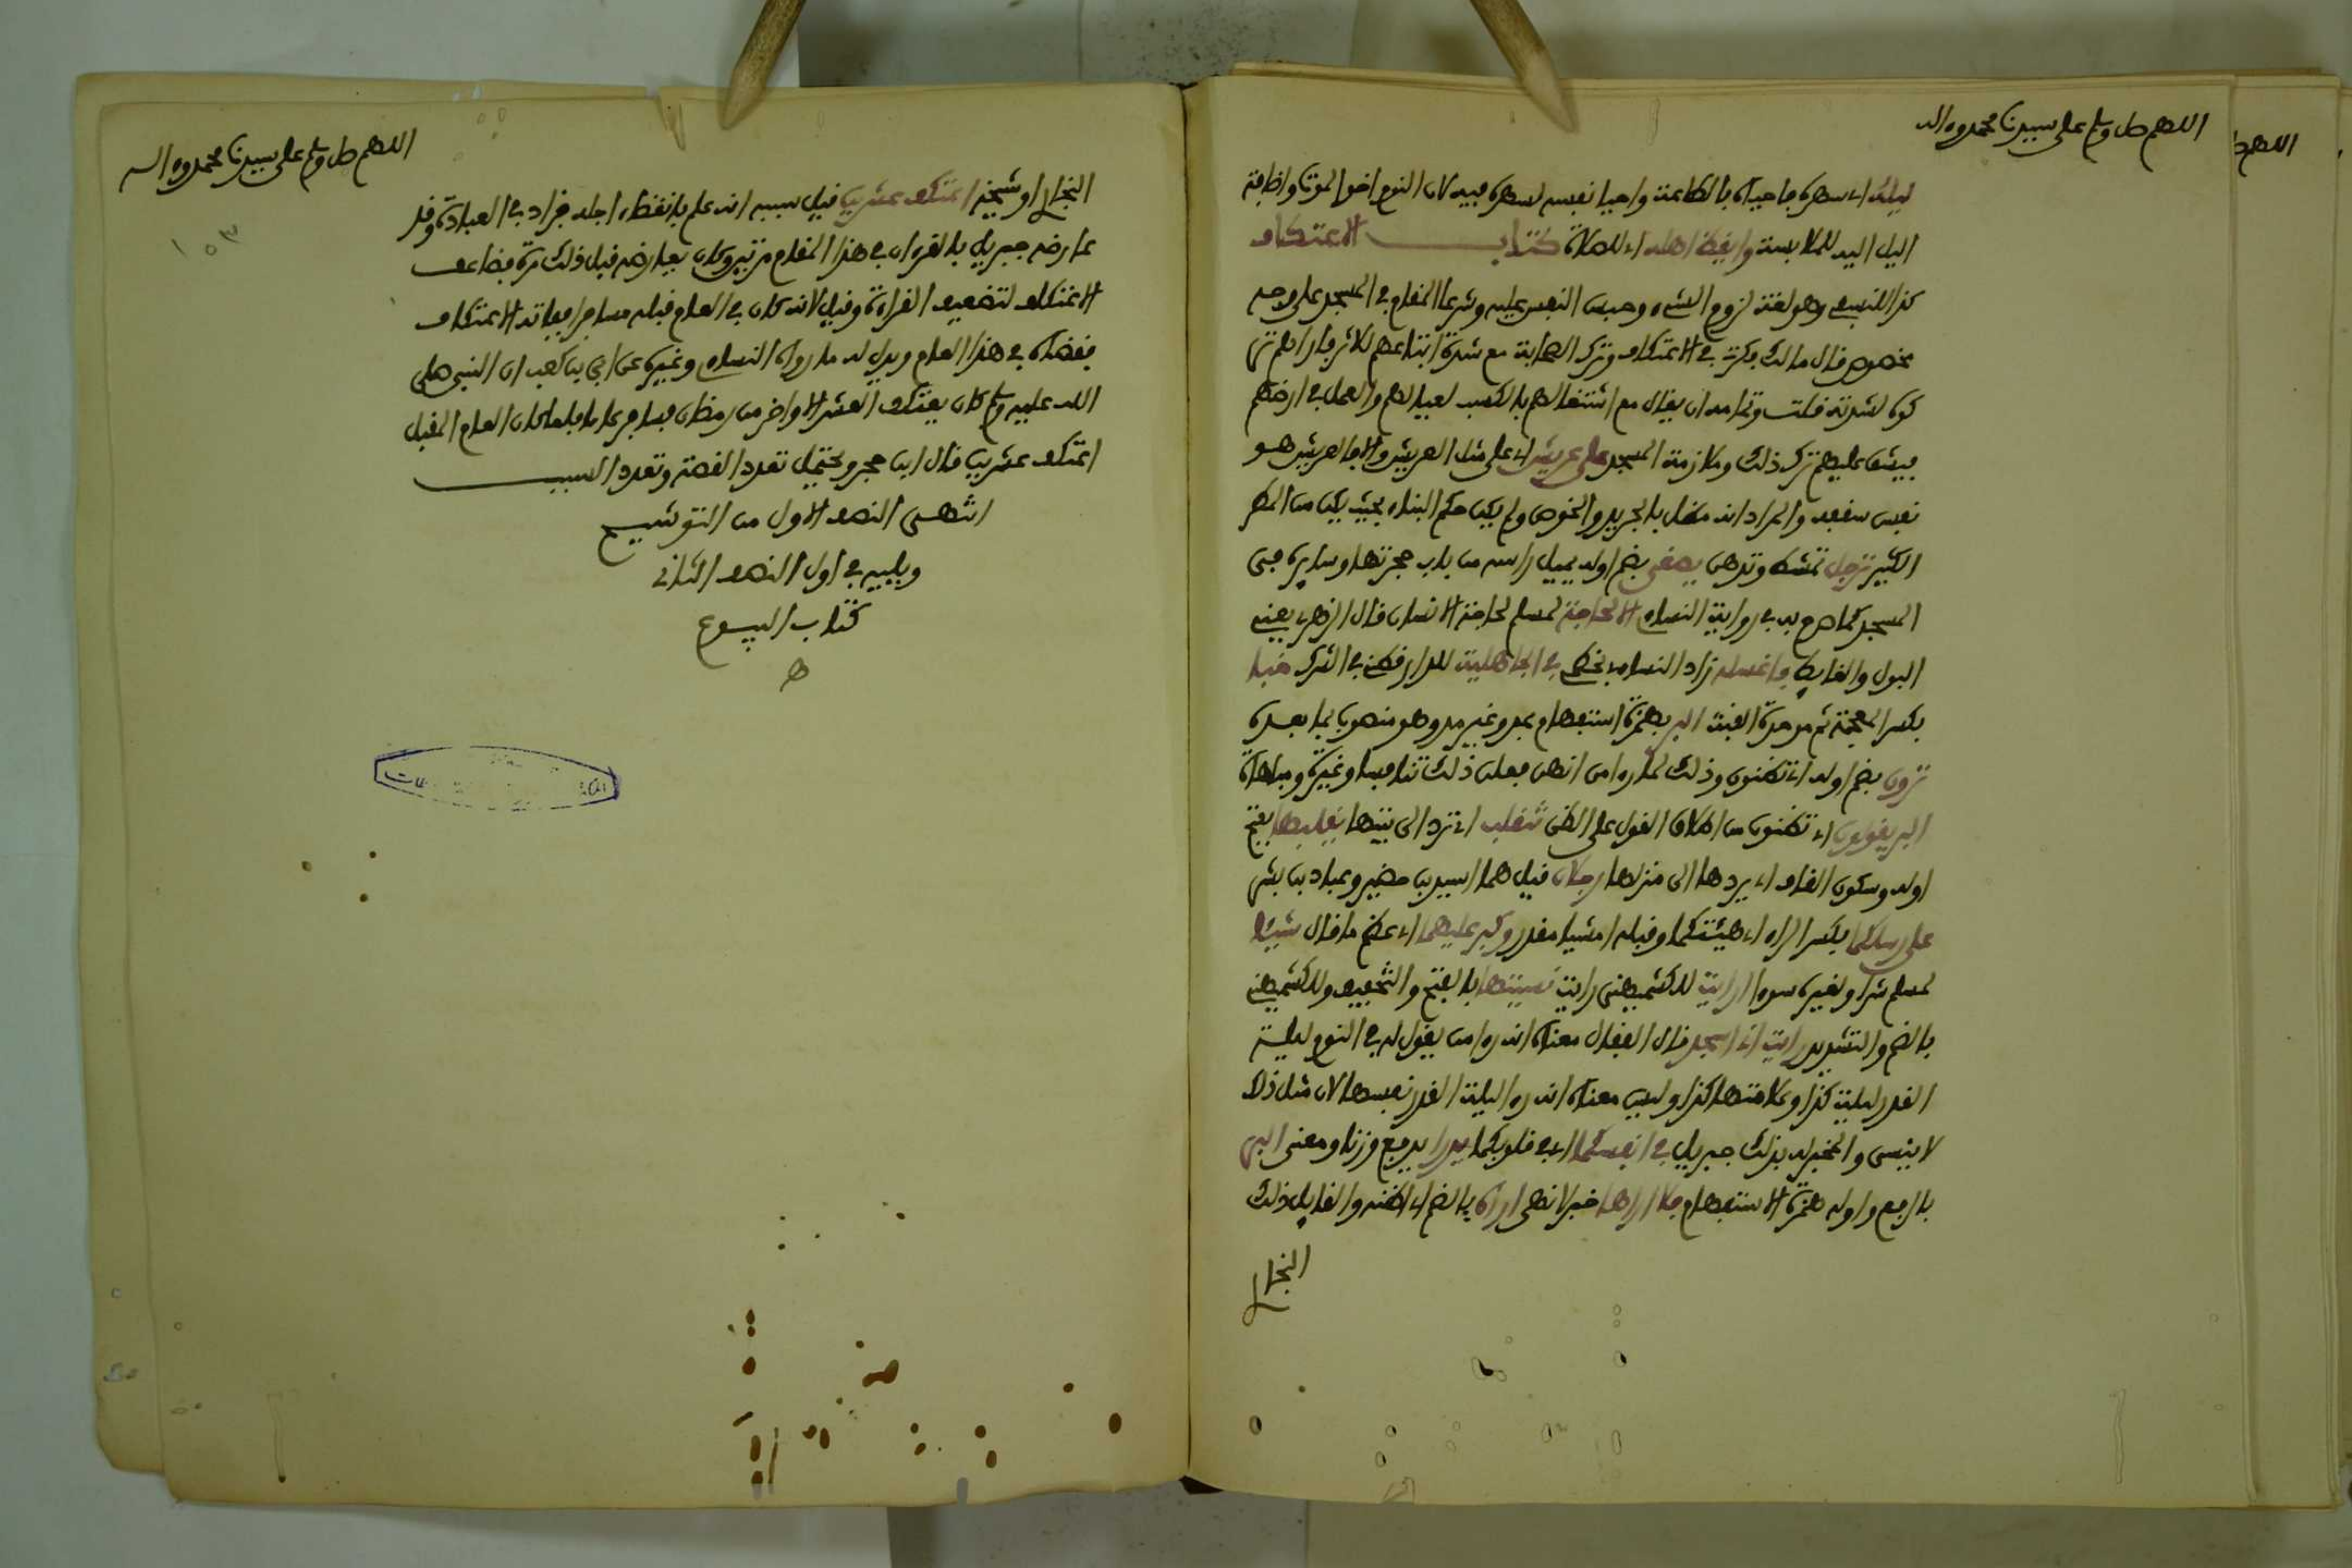 اللهم صل وسلم على سيدنا محمد وءاله
ليله اي سهره فاحياه بالطاعة واحيا نفسه لسهره فيه لان النوم اخو الموت واضافة
اليل اليه للملابسة وايقظ اهله اي للصلاة كتاب الاعتكاف
كذا للنسفي وهو لغة لزوم الشيء وحبس النفس عليه وشرعا المقام في المسجد على وجه
مخصوص قال مالك فكرت في الاعتكاف وترك الصحابة مع شدة اتباعهم للاثر فاراهم تر
كوه لشدته قلت وتمامه ان يقال مع اشتغالهم بالكسب لعيالهم والعمل في ارضهم
فيشق عليهم ترك ذلك وملازمة المسجد على عريش اي على مثل العريش والا فالعريش هو
نفس سقفه والمراد انه مظلل بالجريد والخوص ولم يكن محكم البناء بحيث يكن من المطر
الكثير ترجل تمشط وتدهن يصغي بضم اوله يميل راسه من باب حجرتها وسايره في
المسجد كما صرح به في رواية النساءي الا لحاجة لمسلم لحاجة الانسان قال الزهري يعني
البول والغايط فاغسله زاد النساءي بخطمي في الجاهلية للدارقطني في الشرك خباء
بكسر المعجمة ثم موحدة القبة البر بهمزة استفهام بمد وغير مد وهو منصوب بما بعده
ترون بضم اوله اي تظنون وذلك لما رءا من انهن فعلن ذلك تنافسا وغيرة ومباهاة
البر يقولون اي تظنون من اطلاق القول على الظن تنقلب اي ترد الى بيتها يقلبها بفتح
اوله وسكون القاف اي يردها الى منزلها رجلان قيل هما اسيد بن حضير وعباد بن بشر
على رسلكما بكسر الراء اي هيئتكما وقبله امشيا مقدر وكبر عليهما اي عظم ما قال شيئا
لمسلم شرا ولغيره سوءا اريت للكشميهني رايت نسيتها بالفتح والتخفيف وللكشميهني
بالضم والتشديد رايت اني اسجد قال القفال معناه انه رءا من يقول له في النوم ليلة
القدر ليلة كذا وعلامتها كذا وليس معناه انه رءا ليلة القدر نفسها لان مثل ذلك
لا ينسى والمخبر له بذلك جبريل في انفسكما اي في قلوبكما يدرا يدفع وزنا ومعنى البر
بالرفع واوله همزة الاستفهام فلا اراها خبر لا نهي اراه بالضم اي اظنه والقايل ذلك
البخاري
اللهم صل وسلم على سيدنا محمد وءاله
١٥٣
البخاري او شيخه اعتكف عشرين قيل سببه انه علم بانقضاء اجله فزاد في العبادة وقد
عارضه جبريل بالقرءان في هذا المقام مرتين وكان يعارضه قبل ذلك مرة فضاعف
الاعتكاف لتضعيف القراءة وقيل لانه كان في العام قبله مسافرا ففاته الاعتكاف
فقضاه في هذا العام ويدل له ما رواه النساءي وغيره عن ابي بن كعب ان النبي صلى
الله عليه وسلم كان يعتكف العشر الاواخر من رمضان فسافر عاما فلما كان العام المقبل
اعتكف عشرين قال ابن حجر ويحتمل تعدد القصة وتعدد السبب
انتهى النصف الاول من التوشيح
ويليه في اول النصف الثاني
كتاب البيوع